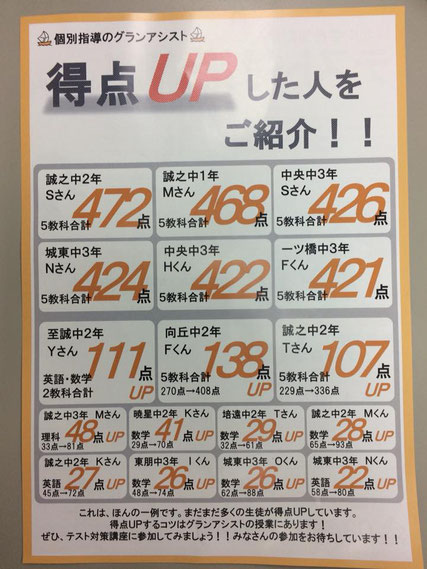 個別指導のグランアシスト
得点UPした人を
ご紹介！！
誠之中2年
Sさん
472点
5教科合計
誠之中1年
Mさん
468点
5教科合計
中央中3年
Sさん
426点
5教科合計
城東中3年
Nさん
424点
5教科合計
中央中3年
Hくん
422点
5教科合計
一ツ橋中3年
Fくん
421点
5教科合計
至誠中2年
Yさん
111点UP
英語・数学
2教科合計
向丘中2年
Fくん
138点UP
5教科合計
270点→408点
誠之中2年
Tさん
107点UP
5教科合計
229点→336点
誠之中3年 Mさん
理科 48点UP
33点→81点
暁星中2年 Kさん
数学 41点UP
29点→70点
培遠中2年 Tさん
数学 29点UP
32点→61点
誠之中2年 Mくん
数学 28点UP
65点→93点
誠之中2年 Kさん
英語 27点UP
45点→72点
東朋中3年 Iくん
数学 26点UP
48点→74点
城東中3年 Oくん
数学 26点UP
62点→88点
城東中3年 Nくん
英語 22点UP
58点→80点
これは、ほんの一例です。まだまだ多くの生徒が得点UPしています。
得点UPするコツはグランアシストの授業にあります！
ぜひ、テスト対策講座に参加してみましょう！！みなさんの参加をお待ちしています！！